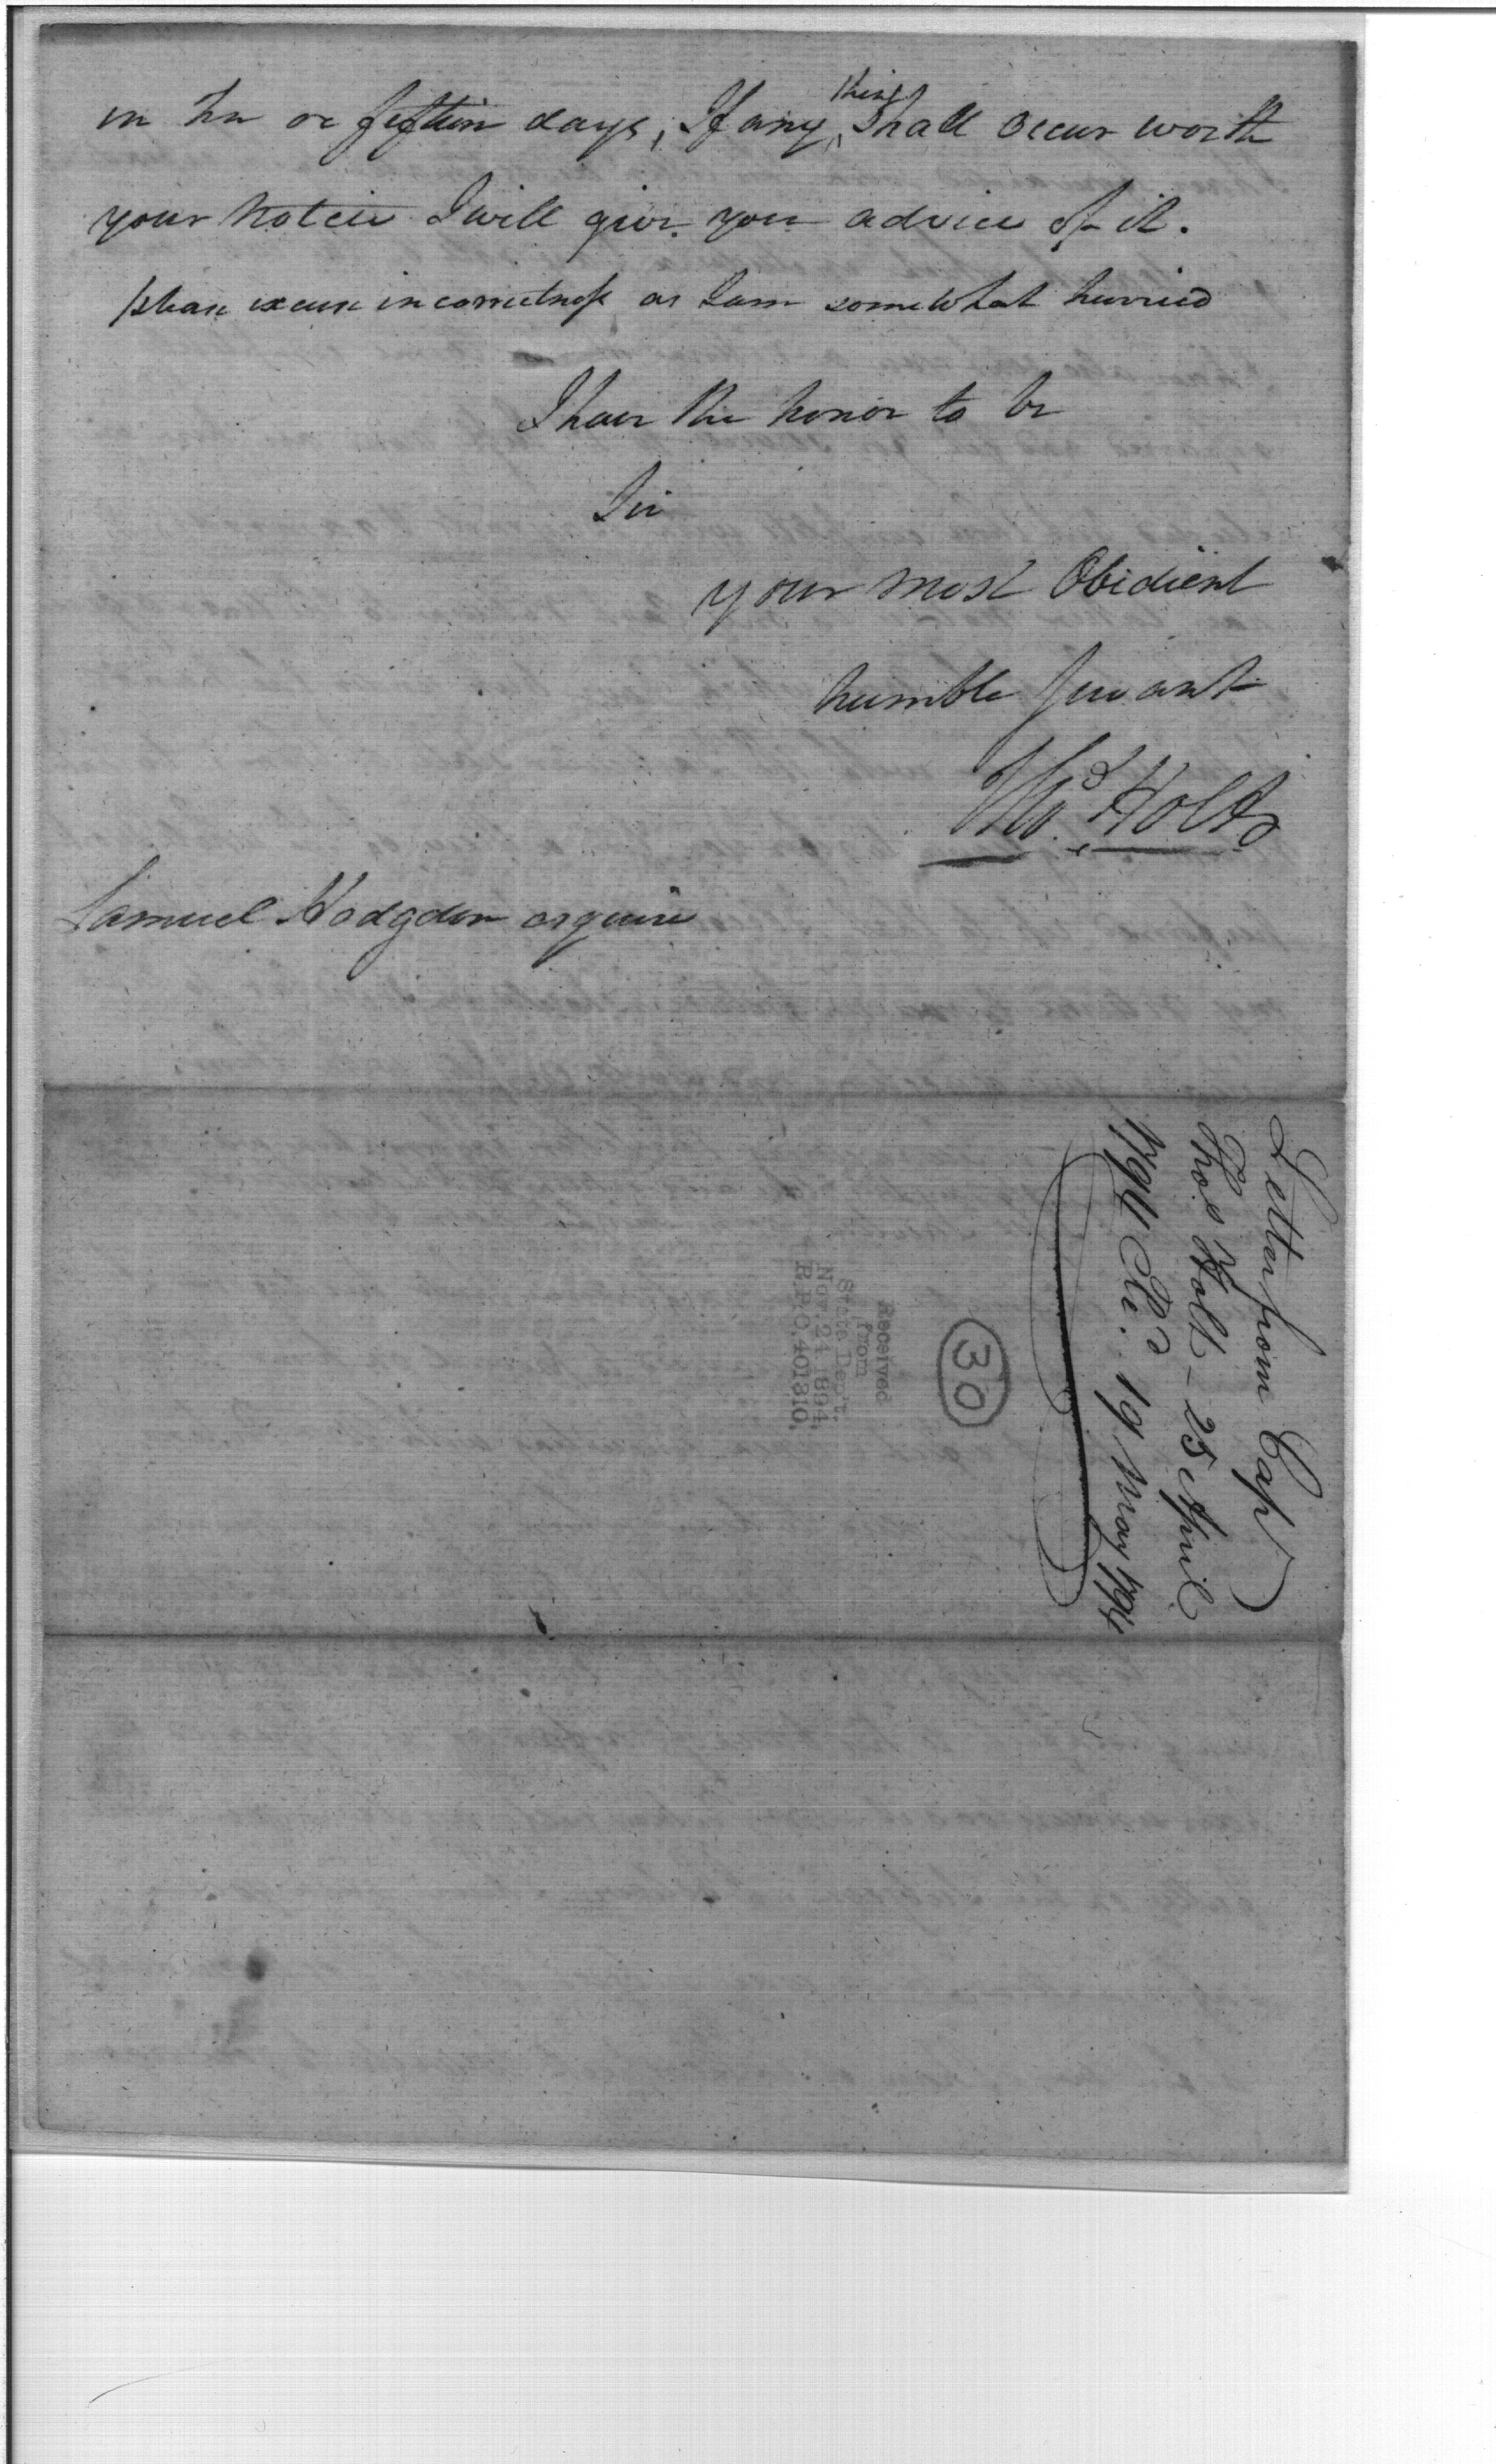 in ten or fifteen days, If any thing shall occur worth
your notice I will give you advice of it.
please excuse incorrectness as I am somewhat hurried
I have the honor to be
Sir
your most Obidient
humble Servant
Tho.s Holt
Samuel Hodgdon esquire
Letter from Cap
Thos Holt - 25 April
1794 19 May 1794
30
Received
from
State Dep't.
Nov. 21 1894,
R.P.O. 401810,